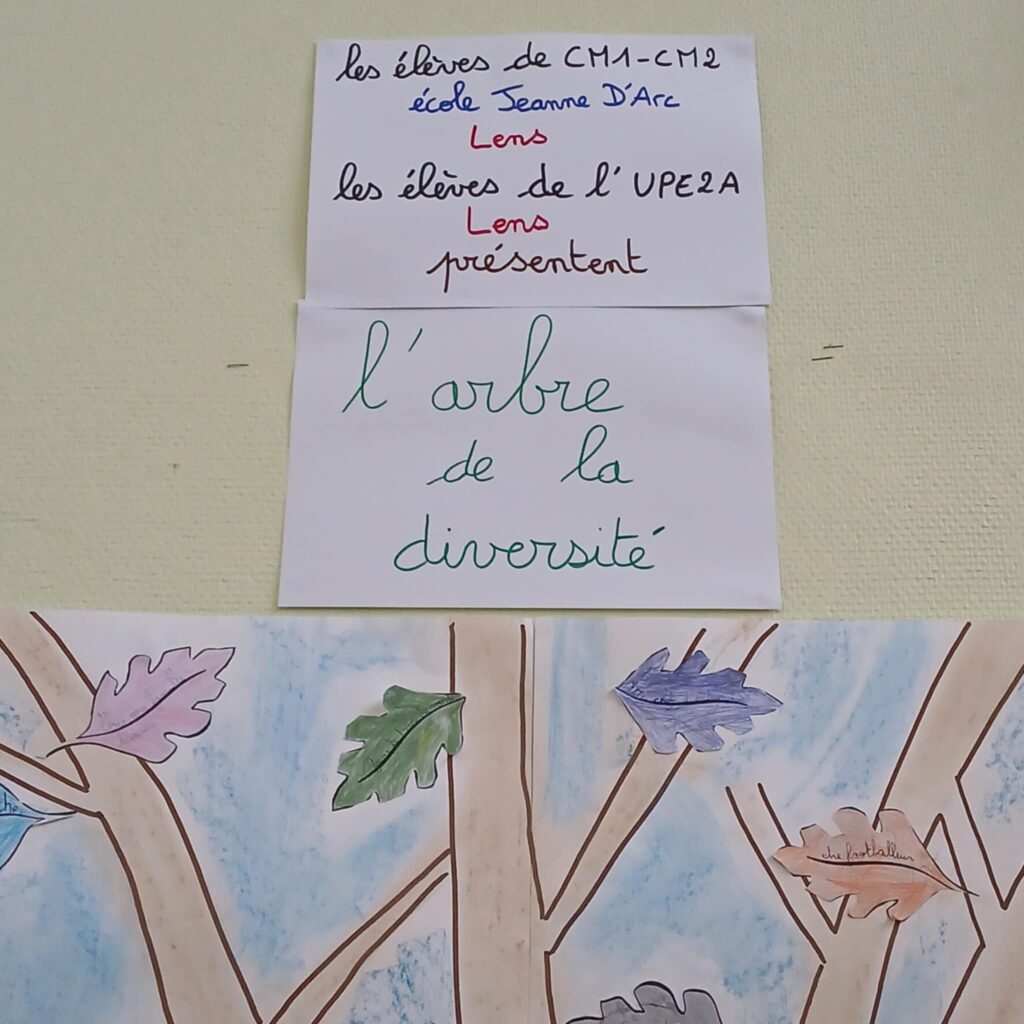 les élèves de CM1-CM2
école Jeanne D'Arc
Lens
les élèves de l'UPE2A
Lens
présentent
l'arbre
de la
diversité
être footballeur